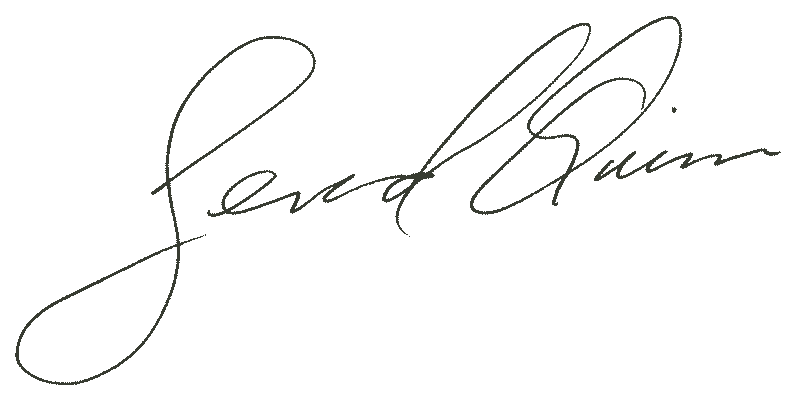 Gerard Quinn